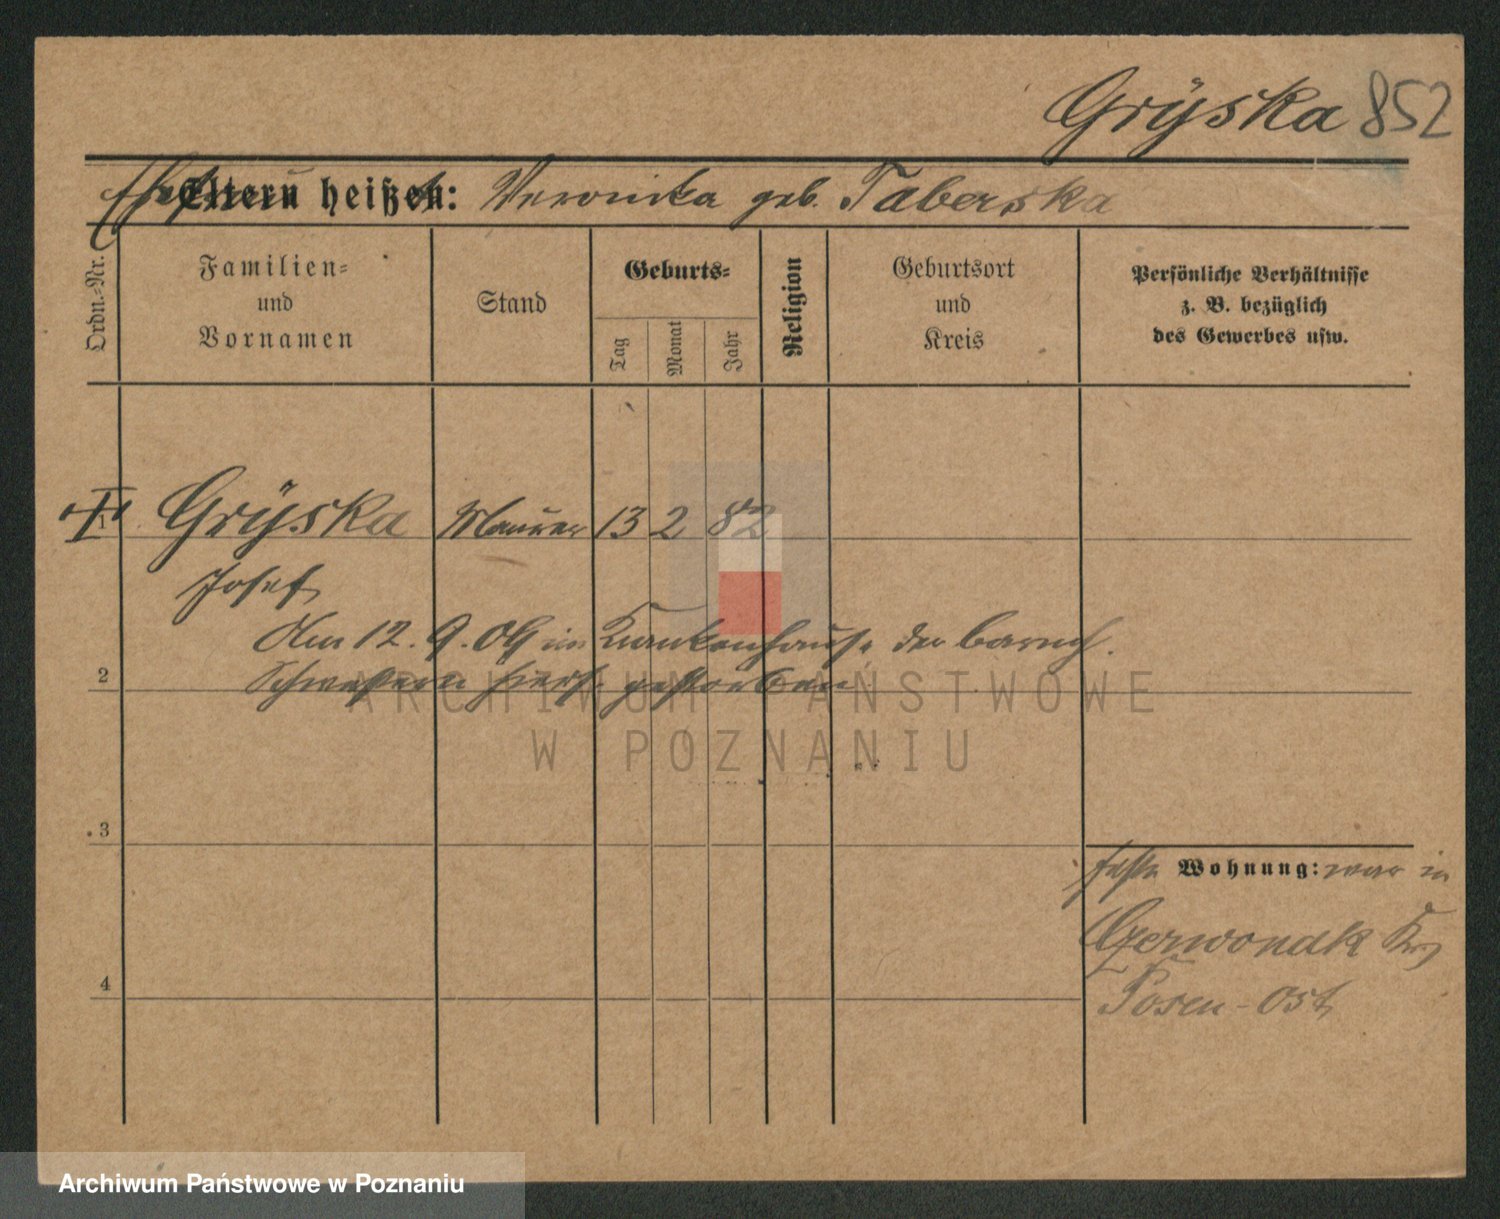 Grÿska 852
Ehefrau
Eltern heißen: Veronika geb. Taberska
Ordn.-Nr.
Familien-
und
Vornamen
Stand
Geburts-
Tag
Monat
Jahr
Religion
Geburtsort
und
Kreis
Persönliche Verhältnisse
z. B. bezüglich
des Gewerbes usw.
1 Grÿska Maurer 13 2 82
Josef
Am 12. 9. 09 im Krankenhause der barmh.
2 Schwestern hiers. gestorben
3
feste Wohnung: war in
Czerwondk Krs
4 Posen-Ost
ARCHIWUM PAŃSTWOWE
W POZNANIU
Archiwum Państwowe w Poznaniu